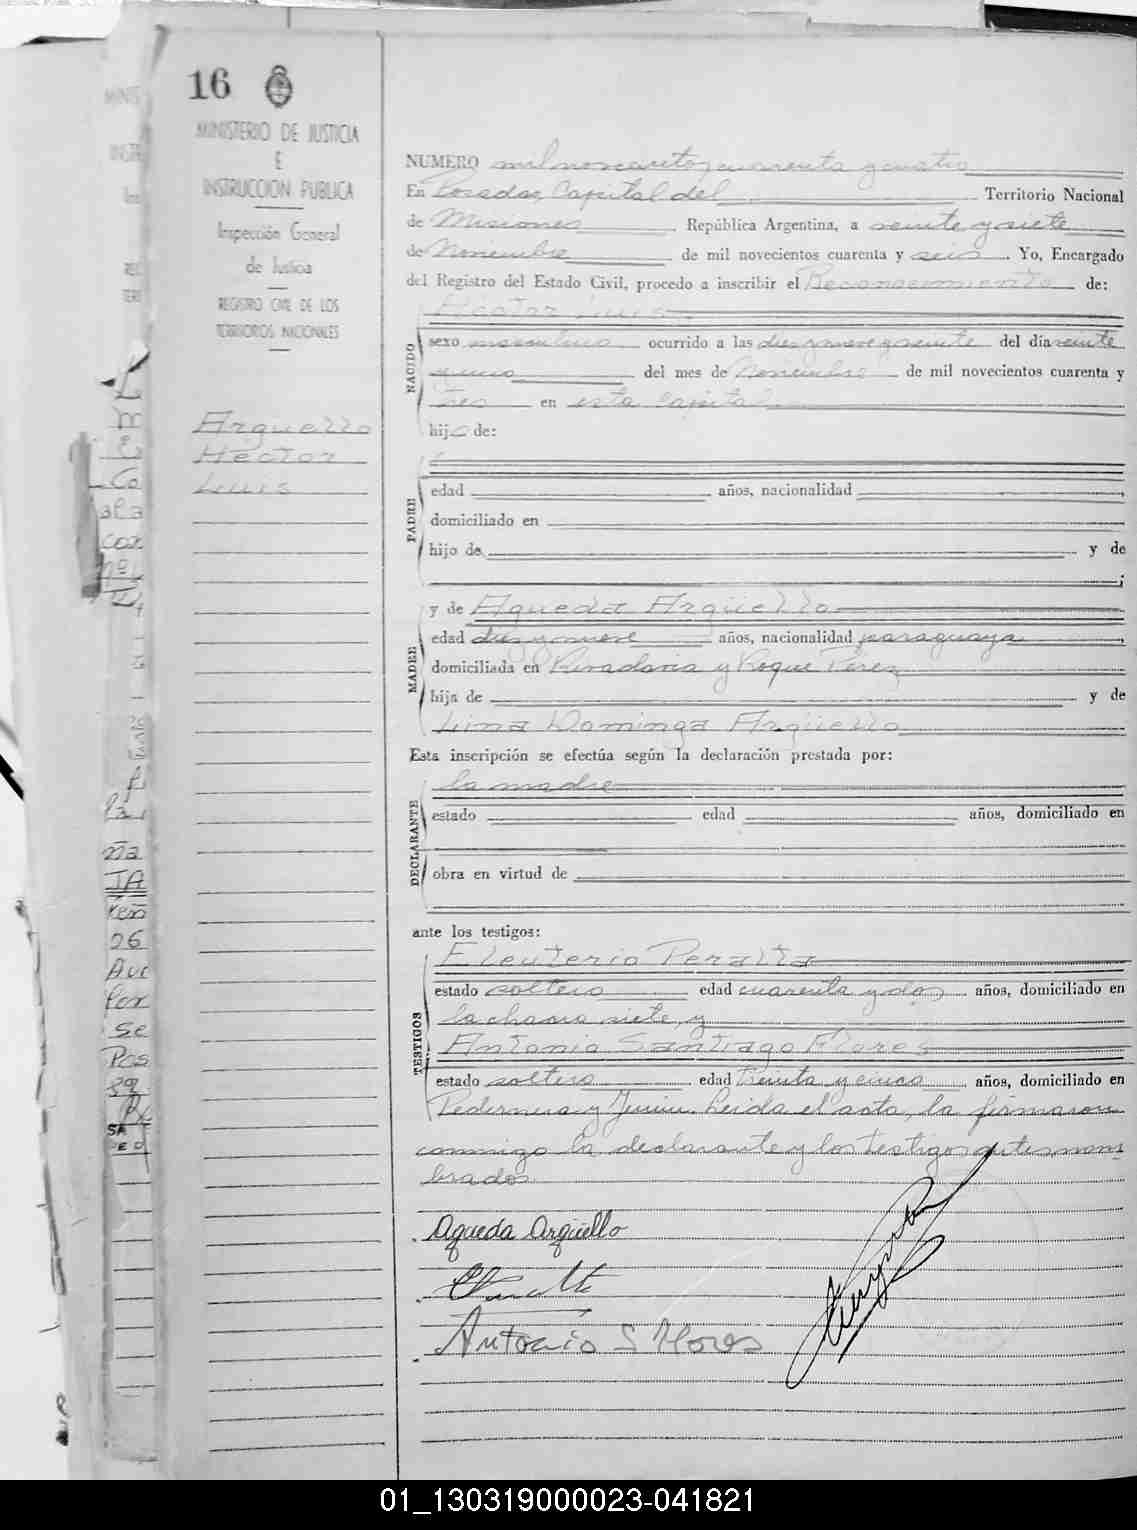 16
MINISTERIO DE JUSTICIA
E
INSTRUCCION PUBLICA
Inspección General
de Justicia
REGISTRO CIVIL DE LOS
TERRITORIOS NACIONALES
Arguello
Hector
Luis
NUMERO mil novecientos cuarenta y cuatro
En Posadas, Capital del Territorio Nacional
de Misiones República Argentina, a veinte y siete
de Noviembre de mil novecientos cuarenta y seis. Yo, Encargado
del Registro del Estado Civil, procedo a inscribir el Reconocimiento de:
NACIDO
Hector Luis
sexo masculino ocurrido a las diez y nueve y veinte del día veinte
y uno del mes de Noviembre de mil novecientos cuarenta y
tres en esta Capital
hijo de:
PADRE
edad años, nacionalidad
domiciliado en
hijo de y de
;
MADRE
y de Agueda Argüello
edad diez y nueve años, nacionalidad paraguaya,
domiciliada en Rivadavia y Roque Perez
hija de y de
Lina Dominga Argüello
Esta inscripción se efectúa según la declaración prestada por:
DECLARANTE
la madre
estado edad años, domiciliado en
obra en virtud de
ante los testigos:
TESTIGOS
Eleuterio Peralta
estado soltero edad cuarenta y dos años, domiciliado en
la chacra siete, y
Antonio Santiago Flores
estado soltero edad treinta y cinco años, domiciliado en
Pedernera y Junin. Leida el acta, la firmaron
conmigo la declarante y los testigos antes nom-
brados
Agueda Argüello
Antonio S Flores
01_130319000023-041821